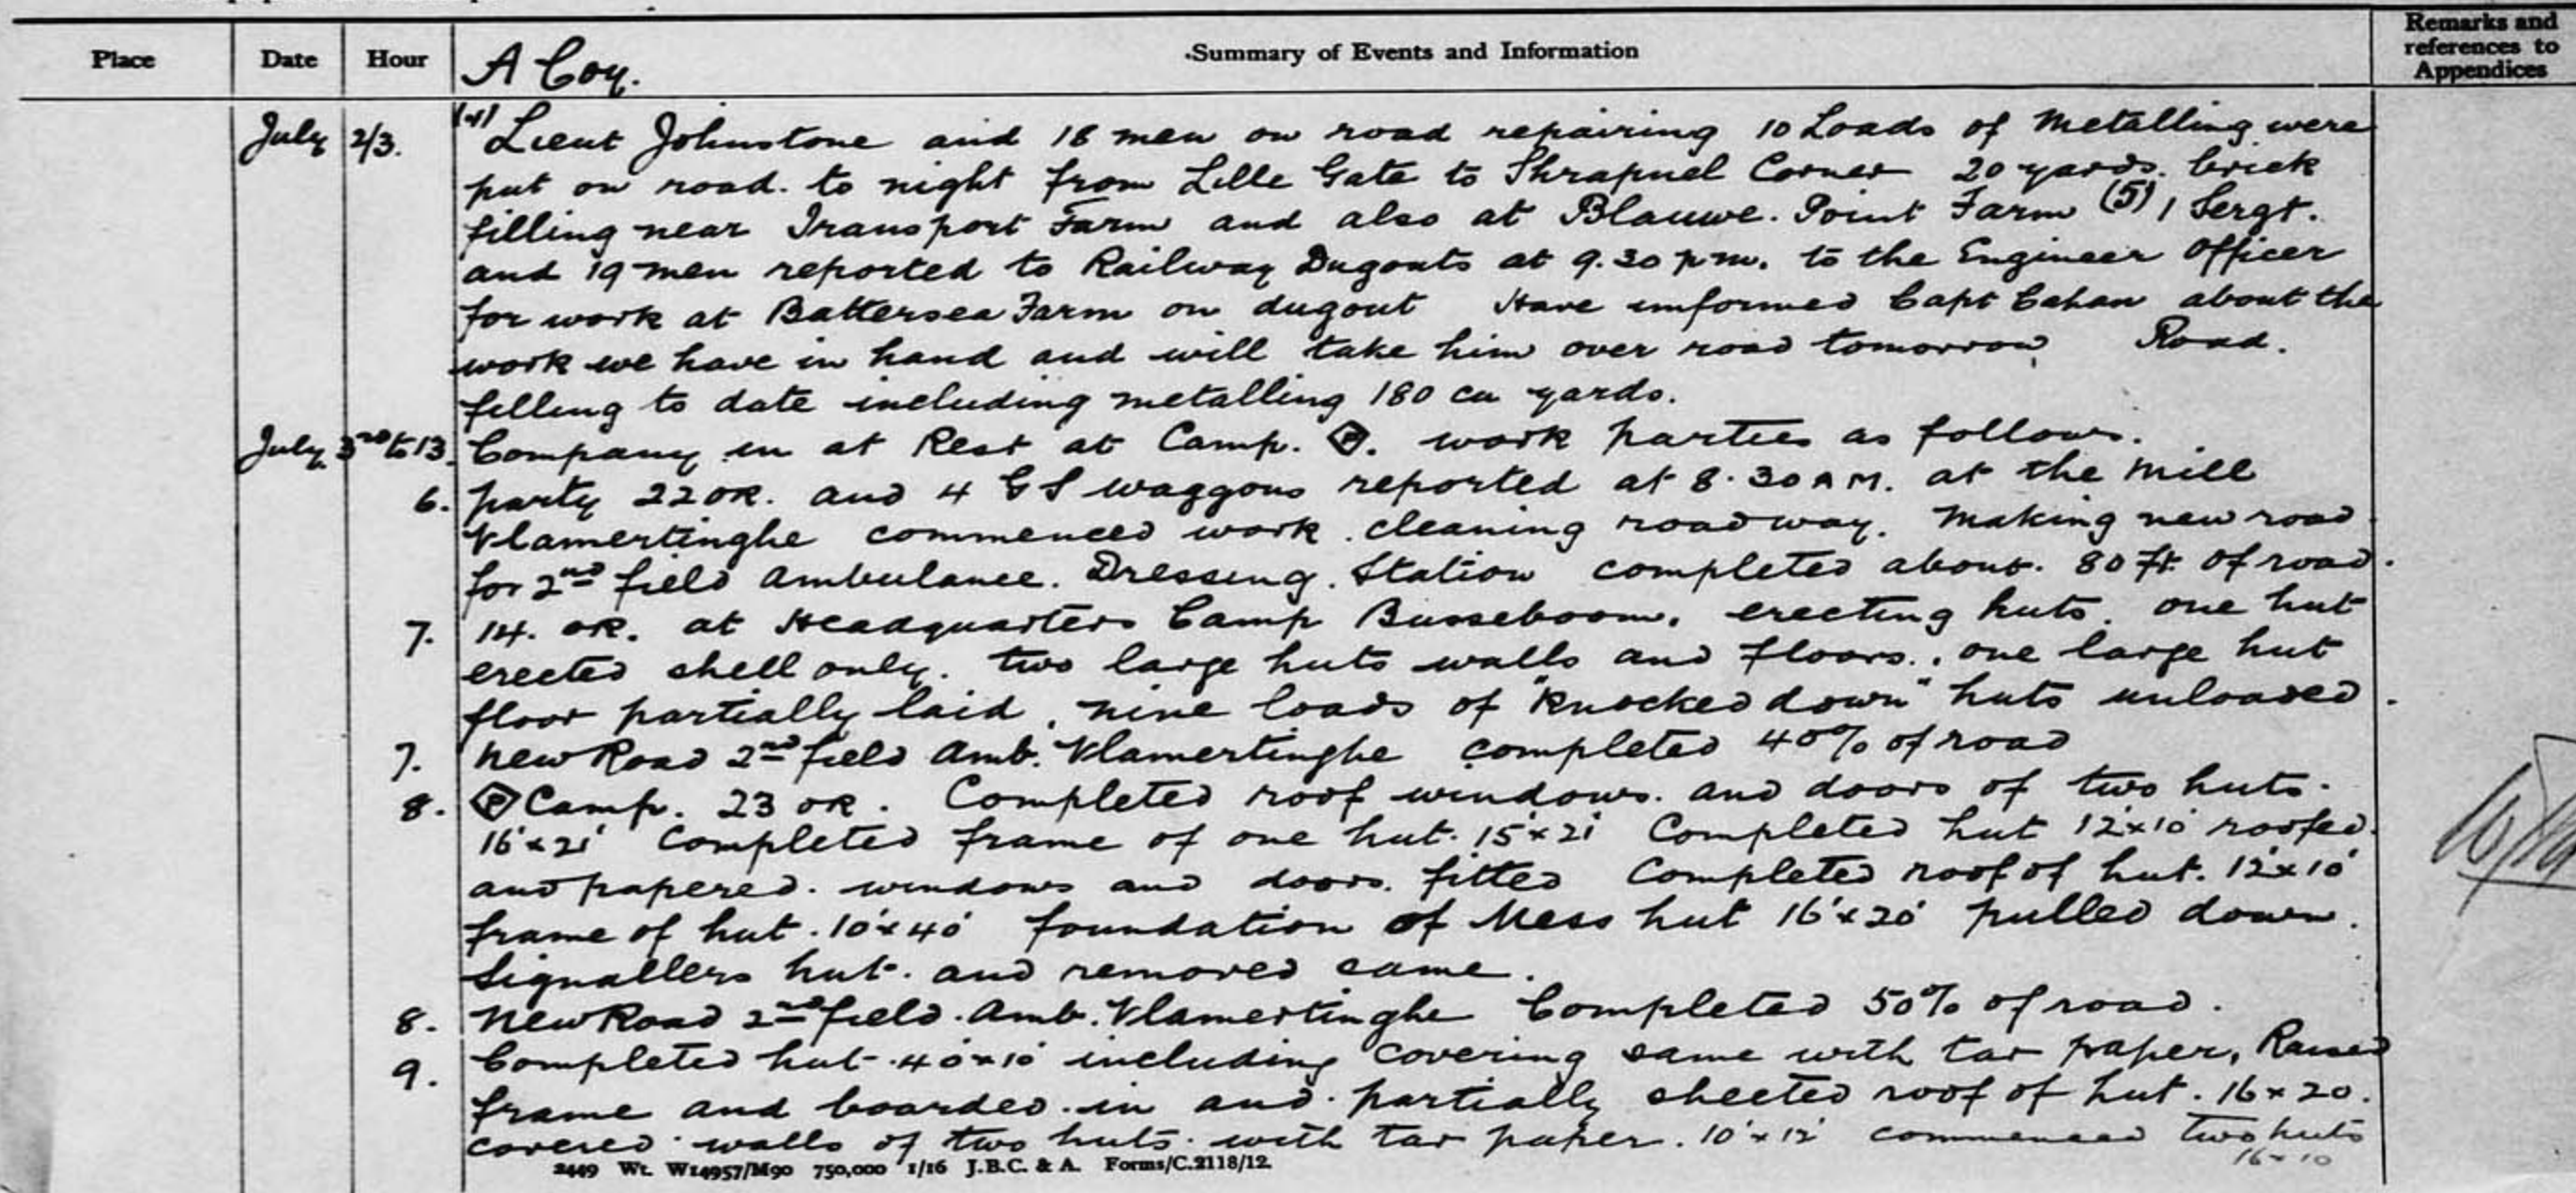 Place Date Hour Summary of Events and Information Remarks and references to Appendices
A Coy.
July 2/3. (4) Lieut Johnstone and 18 men on road repairing 10 Loads of Metalling were
put on road. to night from Lille Gate to Shrapnel Corner 20 yards. brick
filling near Transport Farm and also at Blauwe. Point Farm (5) 1 Sergt.
and 19 men reported to Railway Dugouts at 9.30 p.m. to the Engineer Officer
for work at Battersea Farm on dugout Have informed Capt Cahan about the
work we have in hand and will take him over road tomorrow Road.
filling to date including metalling 180 cu yards.
July 3rd to 13. Company in at Rest at Camp. P. work parties as follows.
6. party 22 OR. and 4 G S waggons reported at 8.30 A M. at the Mill
Vlamertinghe commenced work. cleaning roadway. Making new road
for 2nd field Ambulance. Dressing. Station completed about. 80 ft. of road.
7. 14. OR. at Headquarters Camp Busseboom. erecting huts. one hut
erected shell only. two large huts walls and floors., one large hut
floor partially laid, nine loads of "knocked down" huts unloaded.
7. New Road 2nd field Amb. Vlamertinghe completed 40% of road
8. P Camp. 23 OR. Completed roof windows. and doors of two huts.
16'x21' Completed frame of one hut. 15'x21' Completed hut 12'x10' roofed.
and papered. windows and doors. fitted Completed roof of hut. 12'x10'
frame of hut. 10'x40' foundation of Mess hut 16'x20' pulled down.
Signallers hut. and removed same.
8. New Road 2nd field. Amb. Vlamertinghe Completed 50% of road.
9. Completed hut. 40'x10' including covering same with tar paper, Raised
frame and boarded. in and. partially sheeted roof of hut. 16x20.
covered walls of two huts. with tar paper. 10'x12' commenced two huts
16x10
2449 Wt. W14957/M90 750,000 1/16 J.B.C. & A. Forms/C.2118/12.